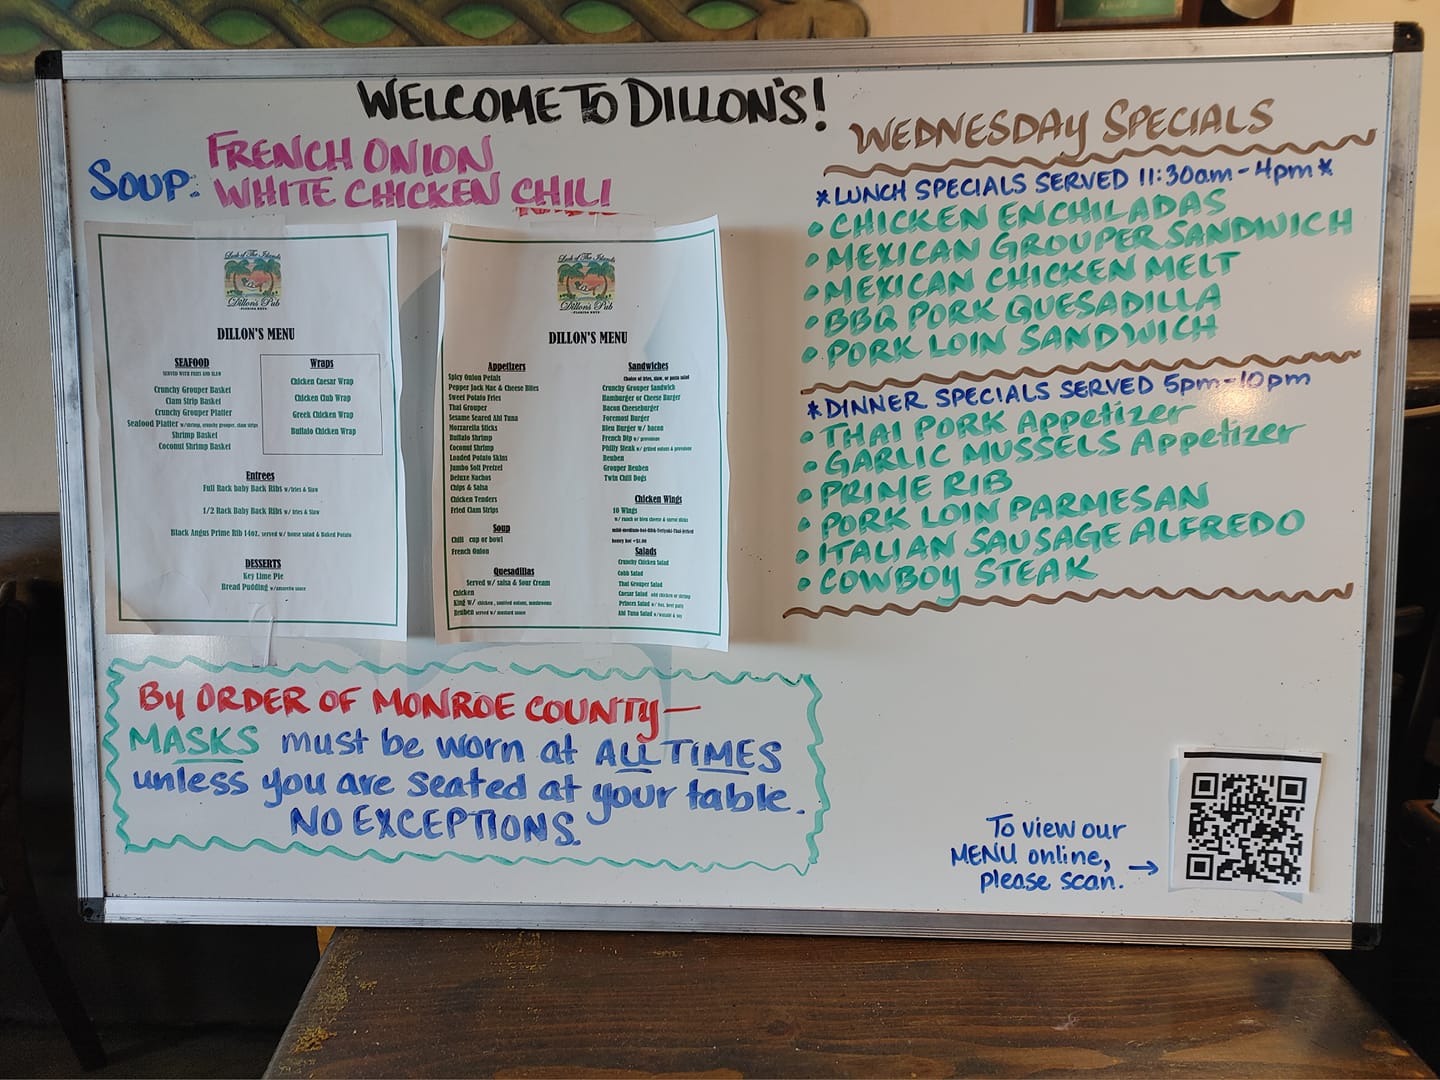 WELCOME TO DILLON'S!
SOUP: FRENCH ONION
WHITE CHICKEN CHILI
Luck of The Islands
Dillon's Pub
DILLON'S MENU
SEAFOOD
SERVED WITH FRIES AND SLAW
Crunchy Grouper Basket
Clam Strip Basket
Crunchy Grouper Platter
Seafood Platter w/shrimp, crunchy grouper, clam strips
Shrimp Basket
Coconut Shrimp Basket
Wraps
Chicken Caesar Wrap
Chicken Club Wrap
Greek Chicken Wrap
Buffalo Chicken Wrap
Entrees
Full Rack baby Back Ribs w/fries & Slaw
1/2 Rack Baby Back Ribs w/ fries & Slaw
Black Angus Prime Rib 14oz. served w/ house salad & Baked Potato
DESSERTS
Key Lime Pie
Bread Pudding w/amaretto sauce
Luck of The Islands
Dillon's Pub
DILLON'S MENU
Appetizers
Spicy Onion Petals
Pepper Jack Mac & Cheese Bites
Sweet Potato Fries
Thai Grouper
Sesame Seared Ahi Tuna
Mozzarella Sticks
Buffalo Shrimp
Coconut Shrimp
Loaded Potato Skins
Jumbo Soft Pretzel
Deluxe Nachos
Chips & Salsa
Chicken Tenders
Fried Clam Strips
Soup
Chili cup or bowl
French Onion
Quesadillas
Served w/ salsa & Sour Cream
Chicken
King w/ chicken, sautéed onions, mushrooms
Reuben served w/ mustard sauce
Sandwiches
Choice of fries, slaw, or pasta salad
Crunchy Grouper Sandwich
Hamburger or Cheese Burger
Bacon Cheeseburger
Foremost Burger
Bleu Burger w/ bacon
French Dip w/ provolone
Philly Steak w/ grilled onions & provolone
Reuben
Grouper Reuben
Twin Chili Dogs
Chicken Wings
10 Wings
w/ ranch or bleu cheese & carrot sticks
mild-medium-hot-BBQ-Teriyaki-Thai-Jerked
honey hot +$1.00
Salads
Crunchy Chicken Salad
Cobb Salad
Thai Grouper Salad
Caesar Salad add chicken or shrimp
Princes Salad w/ 8oz. beef patty
Ahi Tuna Salad w/wasabi & soy
WEDNESDAY SPECIALS
*LUNCH SPECIALS SERVED 11:30am-4pm*
• CHICKEN ENCHILADAS
• MEXICAN GROUPER SANDWICH
• MEXICAN CHICKEN MELT
• BBQ PORK QUESADILLA
• PORK LOIN SANDWICH
*DINNER SPECIALS SERVED 5pm-10pm
• THAI PORK Appetizer
• GARLIC MUSSELS Appetizer
• PRIME RIB
• PORK LOIN PARMESAN
• ITALIAN SAUSAGE ALFREDO
• COWBOY STEAK
By ORDER OF MONROE COUNTY—
MASKS must be worn at ALL TIMES
unless you are seated at your table.
NO EXCEPTIONS.
To view our
MENU online, →
please scan.